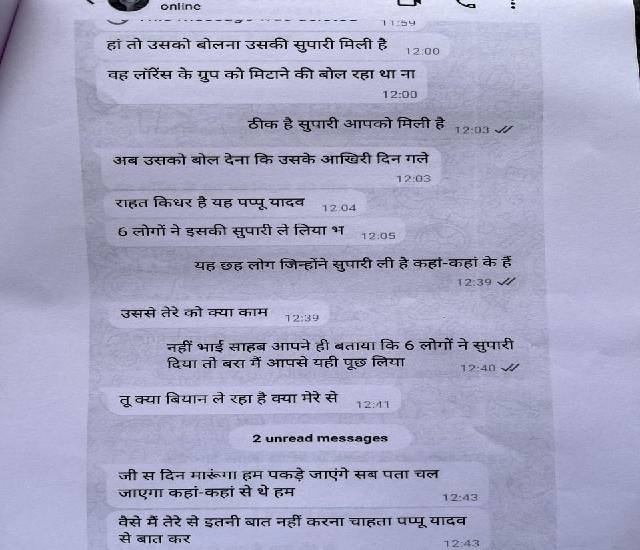 online
This message was deleted
11:59
हां तो उसको बोलना उसकी सुपारी मिली है 12:00
वह लॉरेंस के ग्रुप को मिटाने की बोल रहा था ना
12:00
ठीक है सुपारी आपको मिली है 12:03
अब उसको बोल देना कि उसके आखिरी दिन गले
12:03
राहत किधर है यह पप्पू यादव 12:04
6 लोगों ने इसकी सुपारी ले लिया भ 12:05
यह छह लोग जिन्होंने सुपारी ली है कहां-कहां के हैं
12:39
उससे तेरे को क्या काम 12:39
नहीं भाई साहब आपने ही बताया कि 6 लोगों ने सुपारी
दिया तो बरा मैं आपसे यही पूछ लिया 12:40
तू क्या बियान ले रहा है क्या मेरे से 12:41
2 unread messages
जी स दिन मारूंगा हम पकड़े जाएंगे सब पता चल
जाएगा कहां-कहां से थे हम 12:43
वैसे मैं तेरे से इतनी बात नहीं करना चाहता पप्पू यादव
से बात कर 12:43